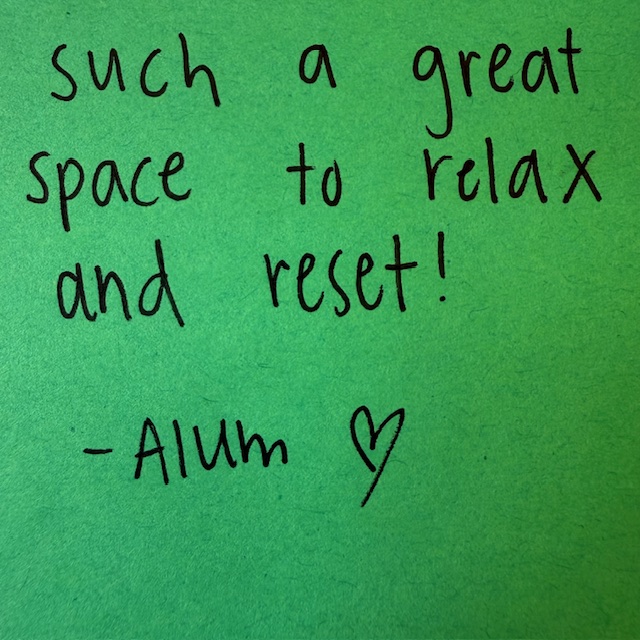 such a great
space to relax
and reset!
-Alum ♡